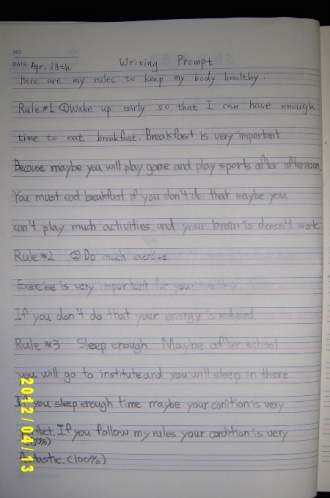 NO.
DATE Apr. 13th Writing Prompt
Here are my rules to keep my body healthy.
Rule #1 ① Wake up early so that I can have enough
time to eat breakfast. Breakfast is very important
Because maybe you will play game and play sports after afternoon
You must eat beakfast if you don't do that maybe you
can't play much activities and your brain is doesn't work.
Rule #2 ② Do much exercise
Exercise is very important for your healthy.
If you don't do that your energy is reduced
Rule #3 Sleep enough. Maybe after school
you will go to institute and you will sleep in there.
If you sleep enough time maybe your conition is very
If you follow my rules your condition is very
(100%)
2012/04/13